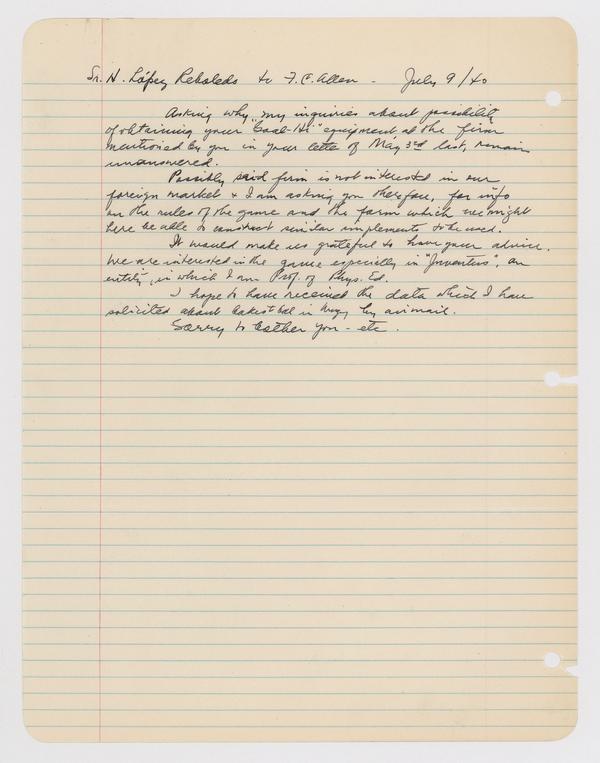 Sr. H. López Reboledo to F.C. Allen - July 9/40
Asking why "my inquiries about possibility
of obtaining your "Goal-Hi" equipment at the firm
mentioned by you in your letter of May 3rd last, remain
unanswered.
Possibly said firm is not interested in our
foreign market & I am asking you therefore, for info
on the rules of the game and the form which we might
here be able to construct similar implements to be used.
It would make us grateful to have your advice.
We are interested in the game especially in "Juventus", an
entity, in which I am Prof. of Phys. Ed.
I hope to have received the data which I have
solicited about basketball in Urugy by airmail.
Sorry to bother you - etc.